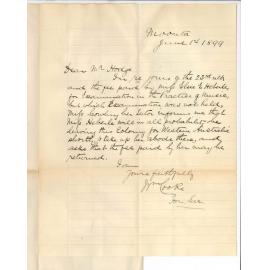 Moonta
June 1st 1899
Dear Mr Hodge
In re yours of the 23rd ult
and the fee paid by Miss Elsie E Heberle
for Examination in the Practice of Music,
but which Examination was not held,
Miss Heberle will in all probability be
leaving this Colony for Western Australia
shortly, & take up her abode there, and
asks that the fee paid by her may be
returned.
I am
Yours faithfully
Jno Cooke
Hon Sec